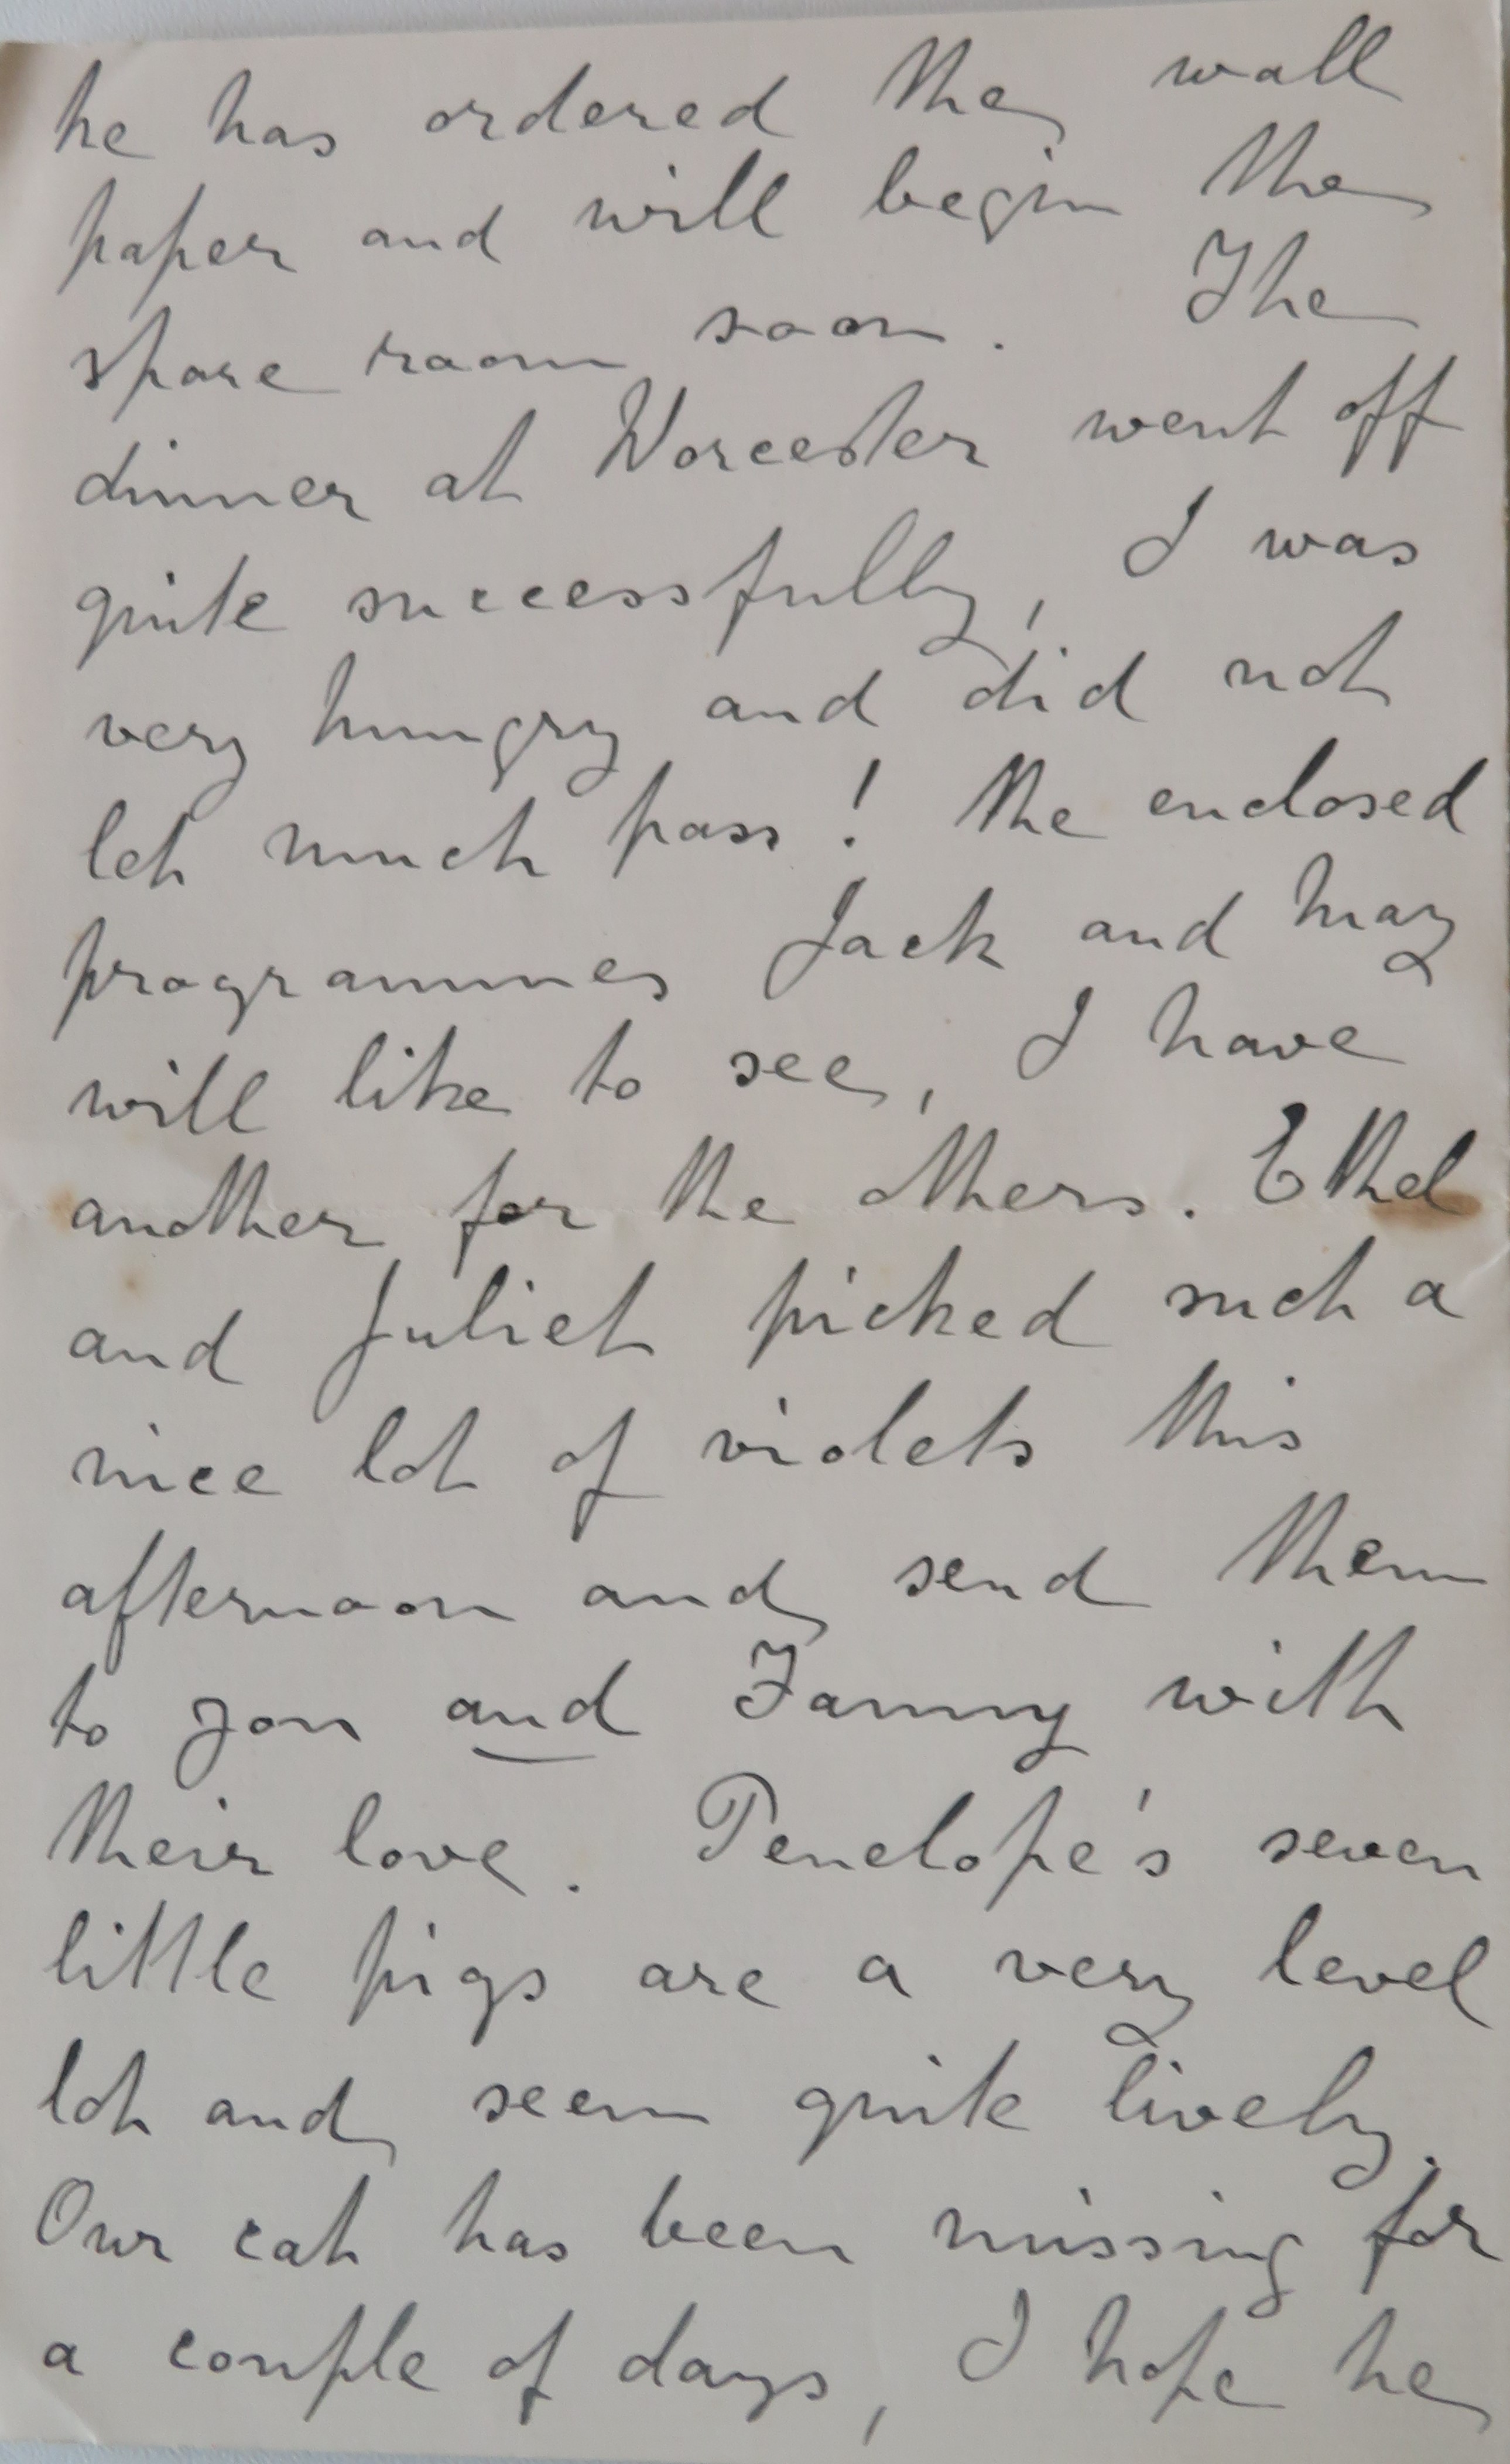 he has ordered the wall
paper and will begin the
spare room soon. The
dinner at Worcester went off
quite successfully, I was
very hungry and did not
let much pass! the enclosed
programmes Jack and May
will like to see, I have
another for the others. Ethel
and Juliet picked such a
nice lot of violets this
afternoon and send them
to you and Fanny with
their love. Penelope's seven
little pigs are a very level
lot and seem quite lively.
Our cat has been missing for
a couple of days, I hope he